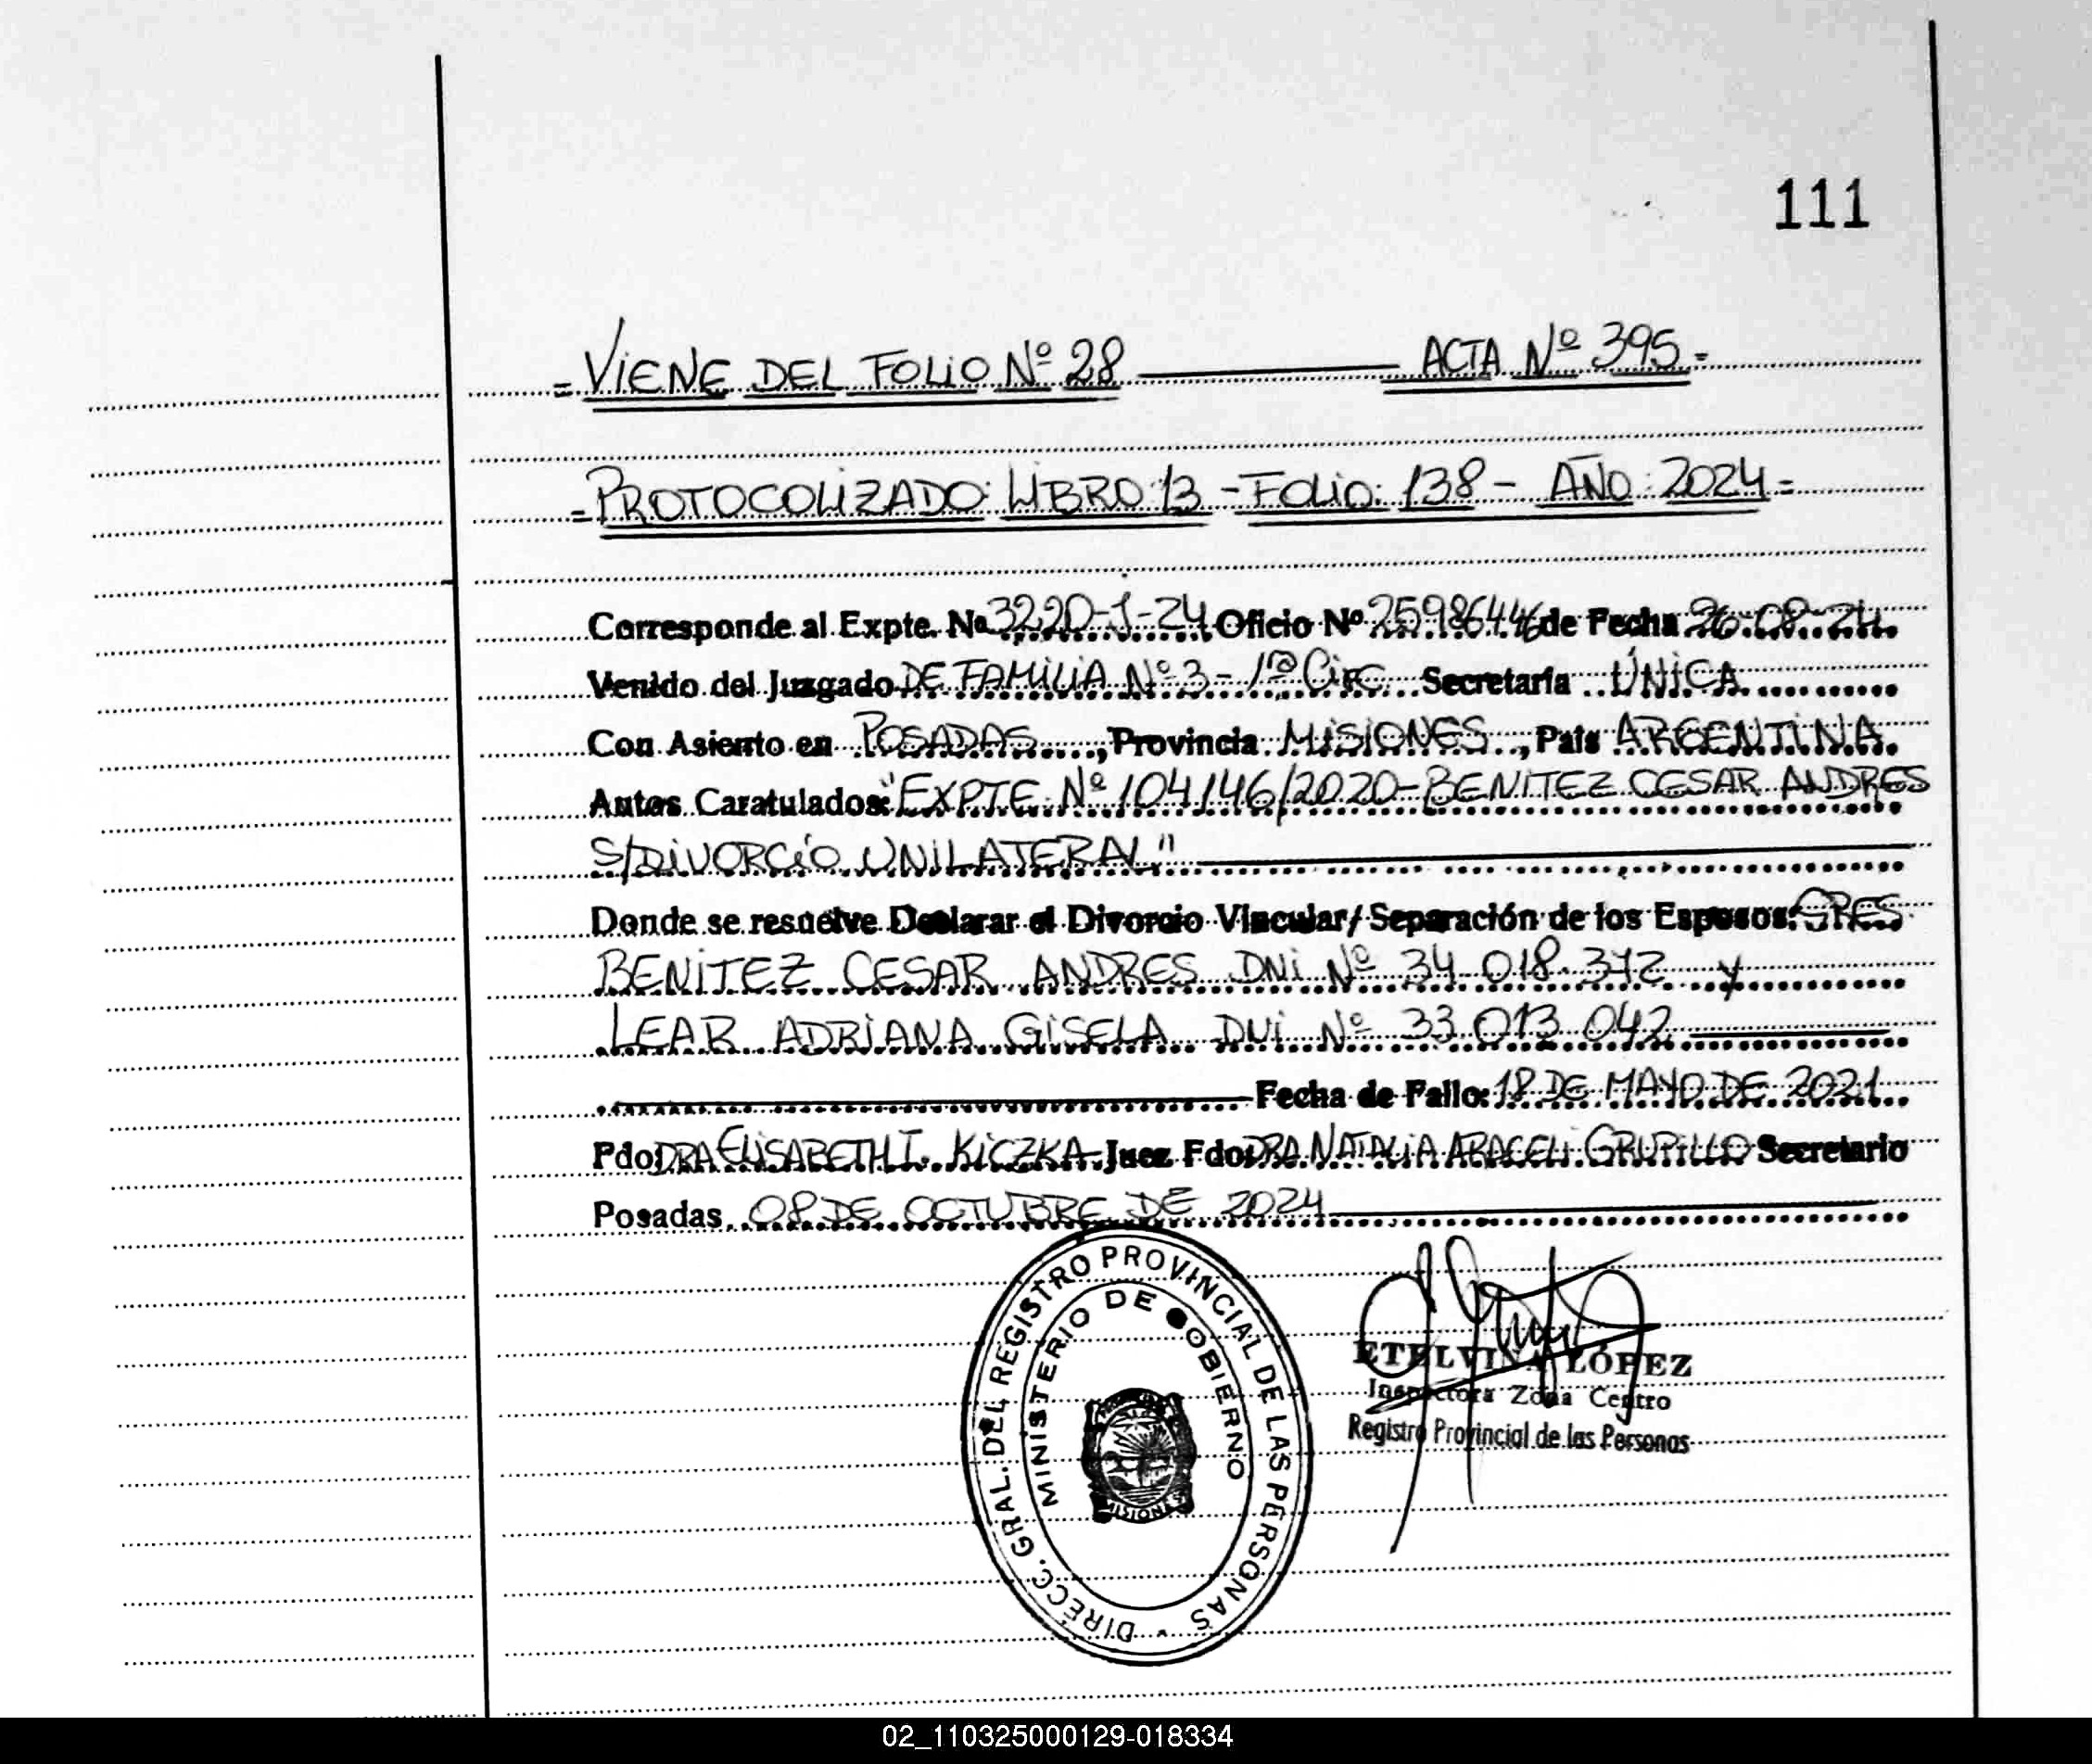 111
= VIENE DEL FOLIO Nº 28 ACTA Nº 395 =
= PROTOCOLIZADO: LIBRO: 13 - FOLIO: 138 - AÑO: 2024 =
Corresponde al Expte. Nº 3220-1-24 Oficio Nº 25986446 de Fecha 26-08-24.
Venido del Juzgado DE FAMILIA Nº 3 - 1ra Circ. Secretaría ÚNICA
Con Asiento en POSADAS, Provincia MISIONES, País ARGENTINA.
Autos Caratulados: "EXPTE Nº 104146/2020 - BENITEZ CESAR ANDRES
S/DIVORCIO UNILATERAL"
Donde se resuelve Declarar el Divorcio Vincular/Separación de los Esposos: SRES
BENITEZ CESAR ANDRES DNI Nº 34.018.372 y
LEAR ADRIANA GISELA DNI Nº 33.013.042
Fecha de Fallo: 18 DE MAYO DE 2021
Fdo: DRA ELISABETH I. KICZKA Juez Fdo: DRA NATALIA ARACELI GRUPILLO Secretario
Posadas, 08 DE OCTUBRE DE 2024
DIRECC. GRAL. DEL REGISTRO PROVINCIAL DE LAS PERSONAS
MINISTERIO DE GOBIERNO
MISIONES
ETELVINA LÓPEZ
Inspectora Zona Centro
Registro Provincial de las Personas
02_110325000129-018334